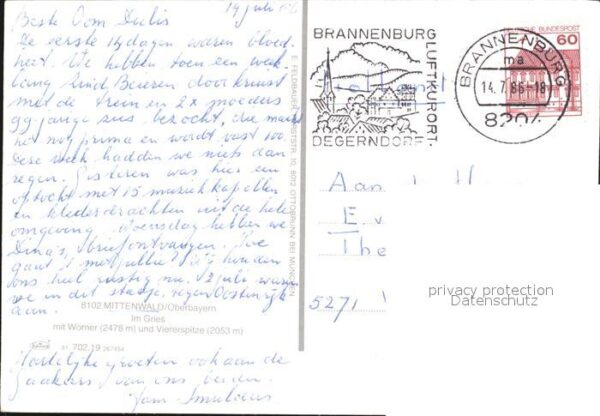 14 juli '86
Beste Oom Dulis
De eerste 14 dagen waren bloed
heet. We hebben toen een week
lang Zuid Beieren doorkruist
met de trein en 2x moeders
99-jarige zus bezocht, die maakt
het nog prima en wordt vast 100
Deze week hadden we niets dan
regen. Gisteren was hier een
optocht met 15 muziekkapellen
in klederdrachten uit de hele
omgeving. Woensdag hebben we
Dina's brief ontvangen. Hoe
gaat 't met jullie? Wij houden
ons heel rustig nu. 2 juli waren
we in dit stadje, tegen Oostenrijk
aan.
8102 MITTENWALD/Oberbayern
Im Gries
mit Wörner (2478 m) und Viererspitze (2053 m)
702.19
Hartelijke groeten ook aan de
van ons beiden.
E. FELDBAUER 8012 OTTOBRUNN BEI MÜNCHEN
BRANNENBURG
LUFTKURORT-
DEGERNDORF
BRANNENBURG
ma
14.7.86-18
8204
DEUTSCHE BUNDESPOST
60
Aan
E v
The
5271
privacy protection
Datenschutz